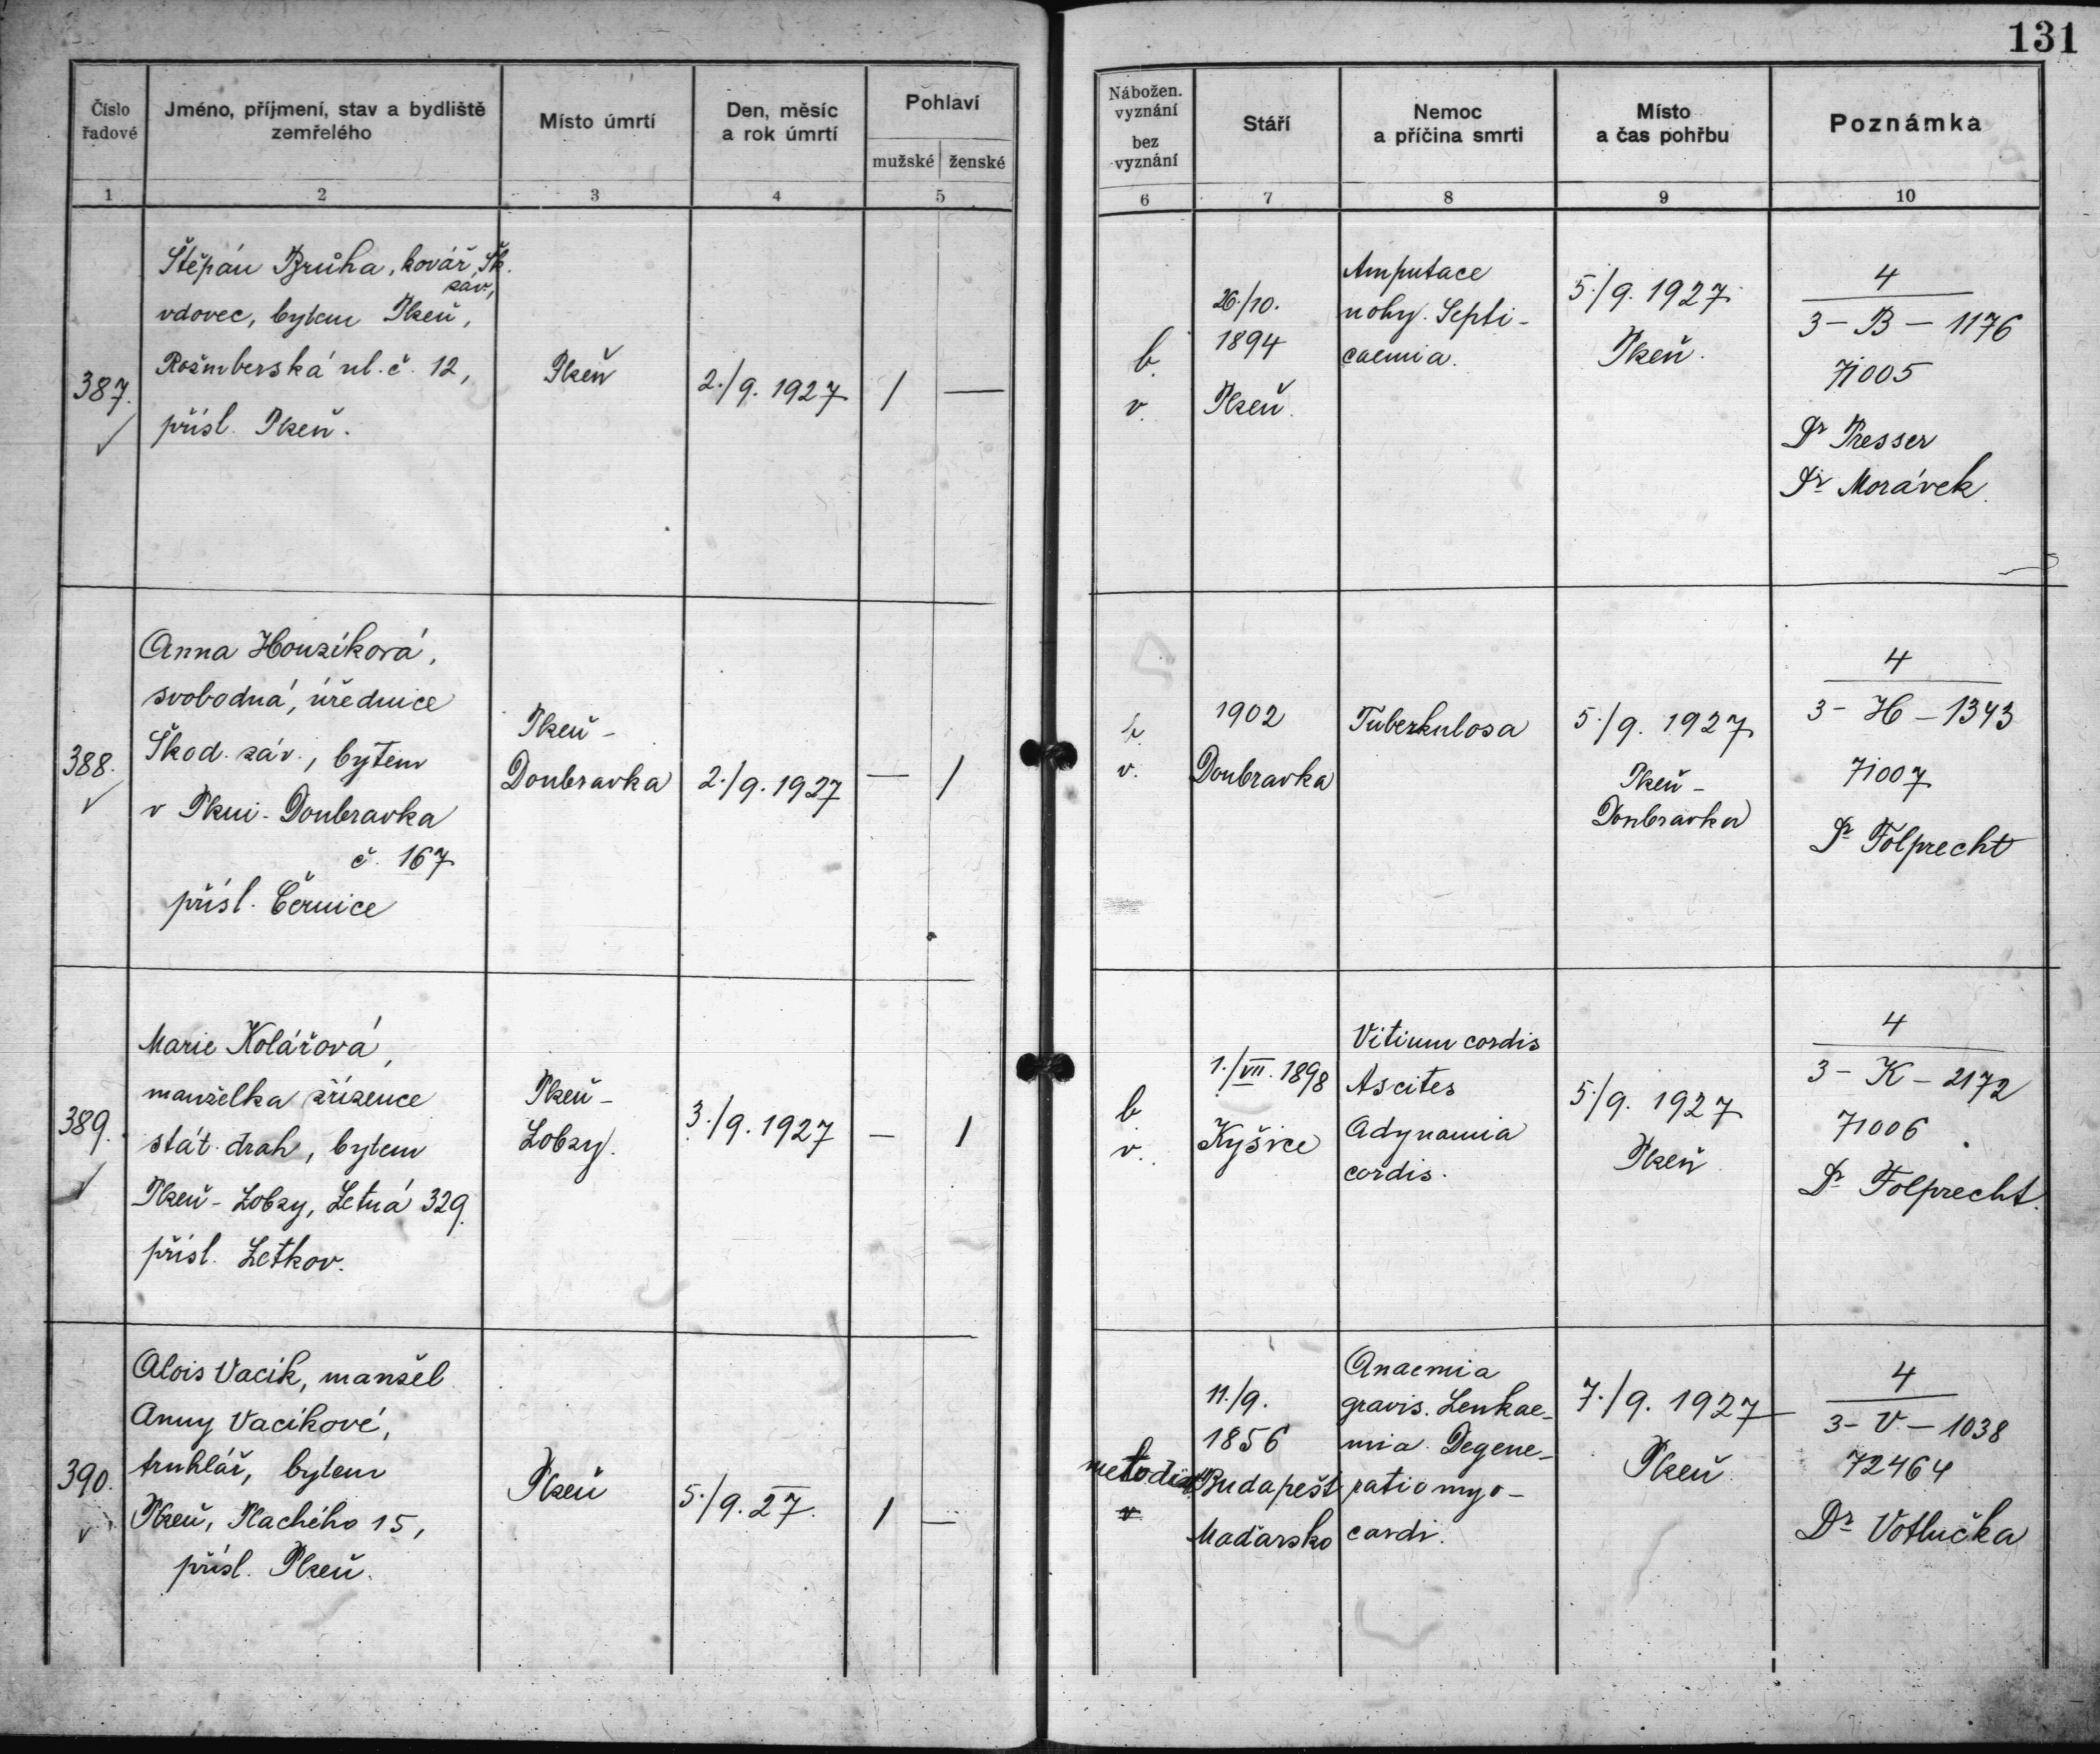 131
Číslo řadové
Jméno, příjmení, stav a bydliště zemřelého
Místo úmrtí
Den, měsíc a rok úmrtí
Pohlaví
mužské
ženské
Nábožen. vyznání
bez vyznání
Stáří
Nemoc a příčina smrti
Místo a čas pohřbu
Poznámka
1
2
3
4
5
6
7
8
9
10
387.
Štěpán Brůha, kovář Šk.
záv,
vdovec, bytem Plzeň,
Rožmberská ul. č. 12,
přísl. Plzeň.
Plzeň
2./9. 1927
/ —
b.
v.
26./10.
1894
Plzeň.
Amputace
nohy. Septi-
caemia.
5./9. 1927.
Plzeň.
4
3 - B - 1176
71005
Dr Presser
Dr Morávek.
388.
Anna Houzíková,
svobodná, úřednice
Škod. záv., bytem
v Plzni - Doubravka
č. 167
přísl. Černice
Plzeň -
Doubravka
2./9. 1927
— /
b.
v.
1902
Doubravka
Tuberkulosa
5./9. 1927
Plzeň -
Doubravka
4
3 - H - 1343
71007
Dr Folprecht
389.
Marie Kolářová,
manželka zřízence
stát. drah, bytem
Plzeň - Lobzy, Letná 329.
přísl. Letkov.
Plzeň -
Lobzy.
3./9. 1927
— /
b.
v.
1./VII. 1898
Kyšice
Vitium cordis
Ascites
Adynamia
cordis.
5./9. 1927
Plzeň
4
3 - K - 2172
71006
Dr Folprecht.
390.
Alois Vacík, manžel
Anny Vacíkové,
truhlář, bytem
Plzeň, Plachého 15,
přísl. Plzeň.
Plzeň
5./9. 27.
/ —
v
11./9.
1856
Budapešť
Maďarsko
Anaemia
gravis. Leukae-
mia. Degene-
ratio myo-
cardi.
7./9. 1927
Plzeň.
4
3 - V - 1038
72464
Dr Votlučka